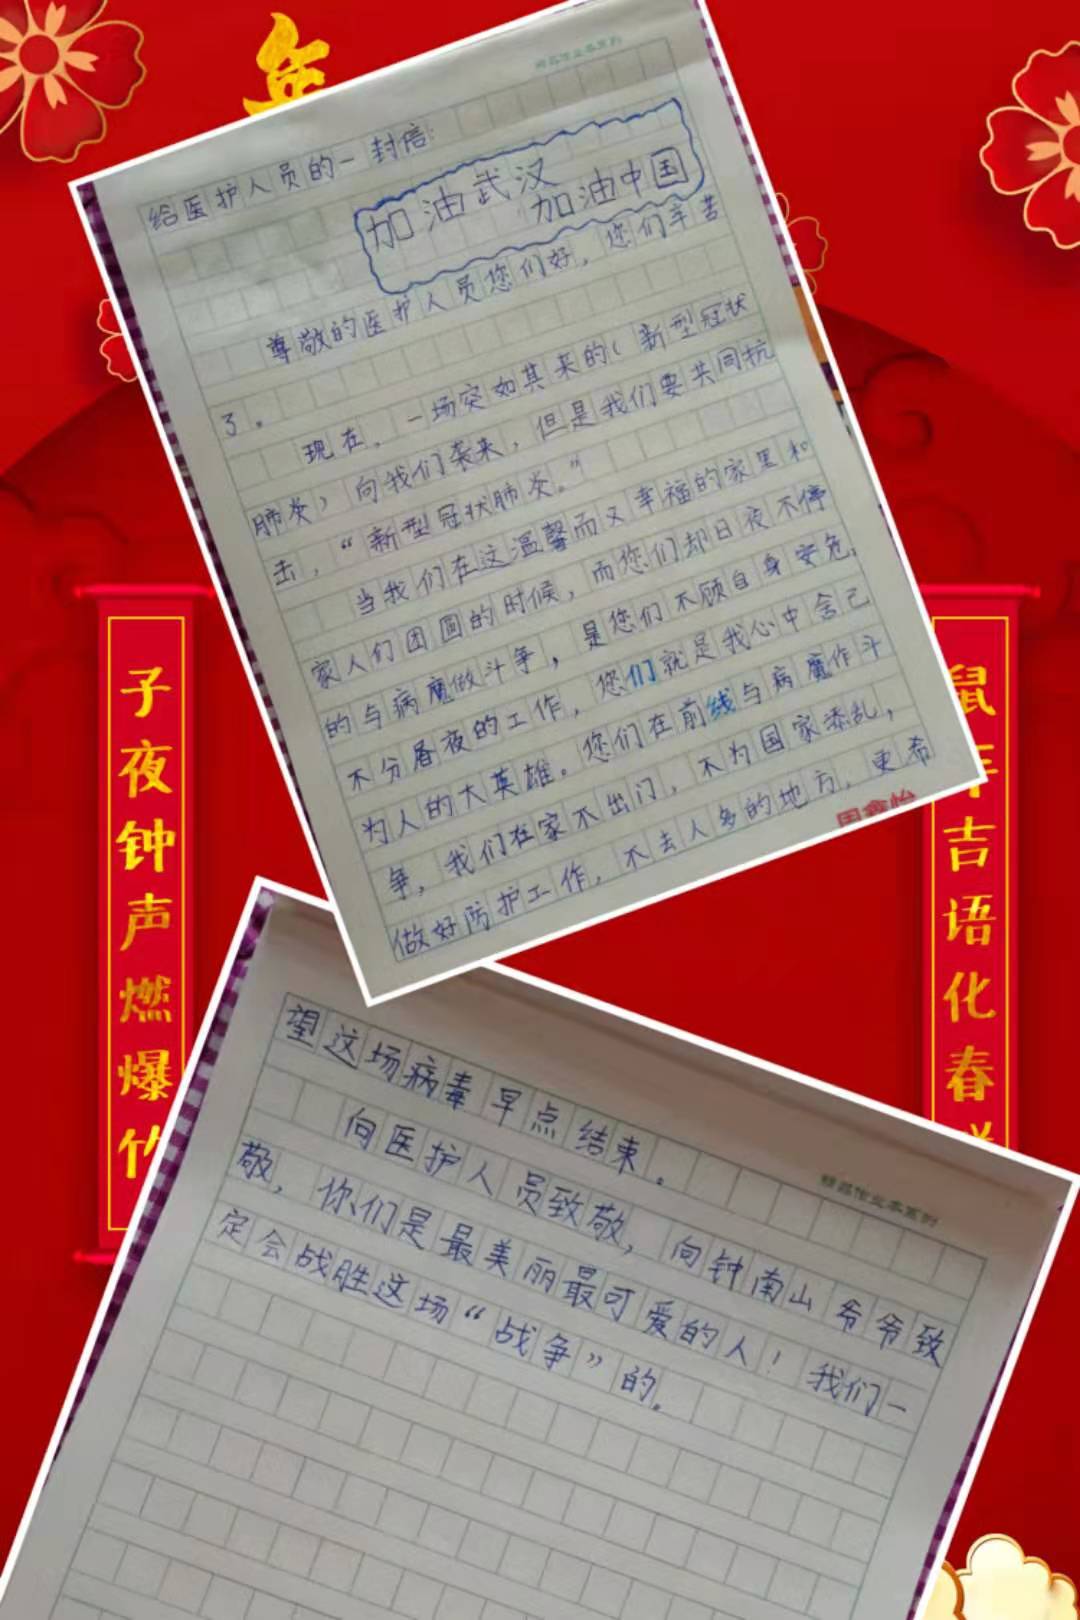 年
精品作业本系列
给医护人员的一封信:
加油武汉
加油中国
尊敬的医护人员您们好，您们辛苦
了。
现在，一场突如其来的（新型冠状
肺炎）向我们袭来，但是我们要共同抗
击，“新型冠状肺炎。”
当我们在这温馨而又幸福的家里和
家人们团圆的时候，而您们却日夜不停
的与病魔做斗争，是您们不顾自身安危，
不分昼夜的工作，您们就是我心中舍己
为人的大英雄。您们在前线与病魔作斗
争，我们在家不出门，不为国家添乱，
做好防护工作，不去人多的地方，更希
望这场病毒早点结束。
向医护人员致敬，向钟南山爷爷致
敬，你们是最美丽最可爱的人！我们一
定会战胜这场“战争”的。
精品作业本系列
子夜钟声燃爆竹
鼠年吉语化春